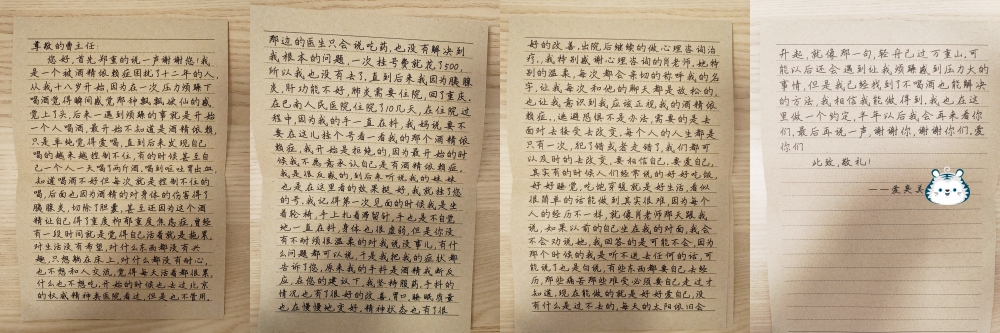 尊敬的曹主任:
您好,首先郑重的说一声谢谢您!我
是一个被酒精依赖症困扰了十二年的人,
我从十八岁开始,因为在一次压力烦琐下
喝酒觉得瞬间感觉那种飘飘欲仙的感
觉上了头,后来一遇到烦躁的事就是开始
一个人喝酒,最开始不知道是酒精依赖,
只是单纯觉得爱喝,直到后来发现自己
喝的越来越控制不住,有的时候甚至自
己一个人一天喝了两斤酒,喝到呕吐胃出血,
知道喝酒不好但每次就是控制不住的
喝,后面也因为酒精的对身体的伤害得了
胰腺炎,切除了胆囊,甚至还因为这个酒
精让自己得了重度抑郁重度焦虑症,曾经
有一段时间就是觉得自己活着就是拖累,
对生活没有希望,对什么东西都没有兴
趣,只想躺在床上,对什么都没有耐心,
也不想和人交流,觉得每天活着都很累,
什么也不想吃,开始的时候也去过北京
的权威精神类医院看过,但是也不管用,
那边的医生只会说吃药,也没有解决到
我根本的问题,一次挂号费就花了500,
所以我也没有去了,直到后来我因为胰腺
炎,肝功能不好,肺炎需要住院,回了重庆,
在巴南人民医院住院了10几天,在住院过
程中,因为我的手一直在抖,我妈说要不
要在这儿挂个号看一看我的那个酒精依
赖症,我开始是拒绝的,因为最开始的时
候我不愿意承认自己是有酒精依赖症,
我是很反感的,到后来听说我的妹妹
也是在这里看的效果挺好,我就挂了您
的号,我记得第一次见面的时候我是坐
着轮椅,手上扎着滞留针,手也是不自觉
地一直在抖,身体也很虚弱,但是你没
有不耐烦很温柔的对我说没事儿,有什
么问题都可以说,于是我把我的症状都
告诉了您,原来我的手抖是酒精戒断反
应,在您的建议下,我坚持服药,手抖的
情况也有了很好的改善,胃口,睡眠质量
也在慢慢地变好,精神状态也有了很
好的改善,出院后继续的做心理咨询治
疗,,我特别感谢心理咨询的肖老师,她特
别的温柔,每次都会亲切的称呼我的名
字,让我每次和他的聊天都是放松的,
也让我意识到我应该正视我的酒精依
赖症,,逃避恐惧不是办法,需要的是去
面对去接受去改变,每个人的人生都是
只有一次,犯了错或者是错了,我们都可
以及时的去改变,要相信自己,要爱自己,
其实有的时候人们经常说的好好吃饭,
好好睡觉,吃饱穿暖就是好生活,看似
很简单的话能做到其实很难,因为每个
人的经历不一样,就像肖老师那天跟我
说,如果以前的自己坐在我的对面,我会
不会劝说她,我回答的是可能不会,因为
那个时候的我是听不进去任何的话,可
能说了也是白说,有些东西都要自己去经
历,那些痛苦那些难受必须要自己走过才
知道,现在能做的就是好好爱自己,没
有什么是过不去的,每天的太阳依旧会
升起,就像那一句,轻舟已过万重山,可
能以后还会遇到让我烦躁感到压力大的
事情,但是我已经找到了不喝酒也能解决
的方法,我相信我能做得到,我也在这
里做一个约定,半年以后我会再来看你
们,最后再说一声,谢谢你,谢谢你们,爱
你们
此致,敬礼!